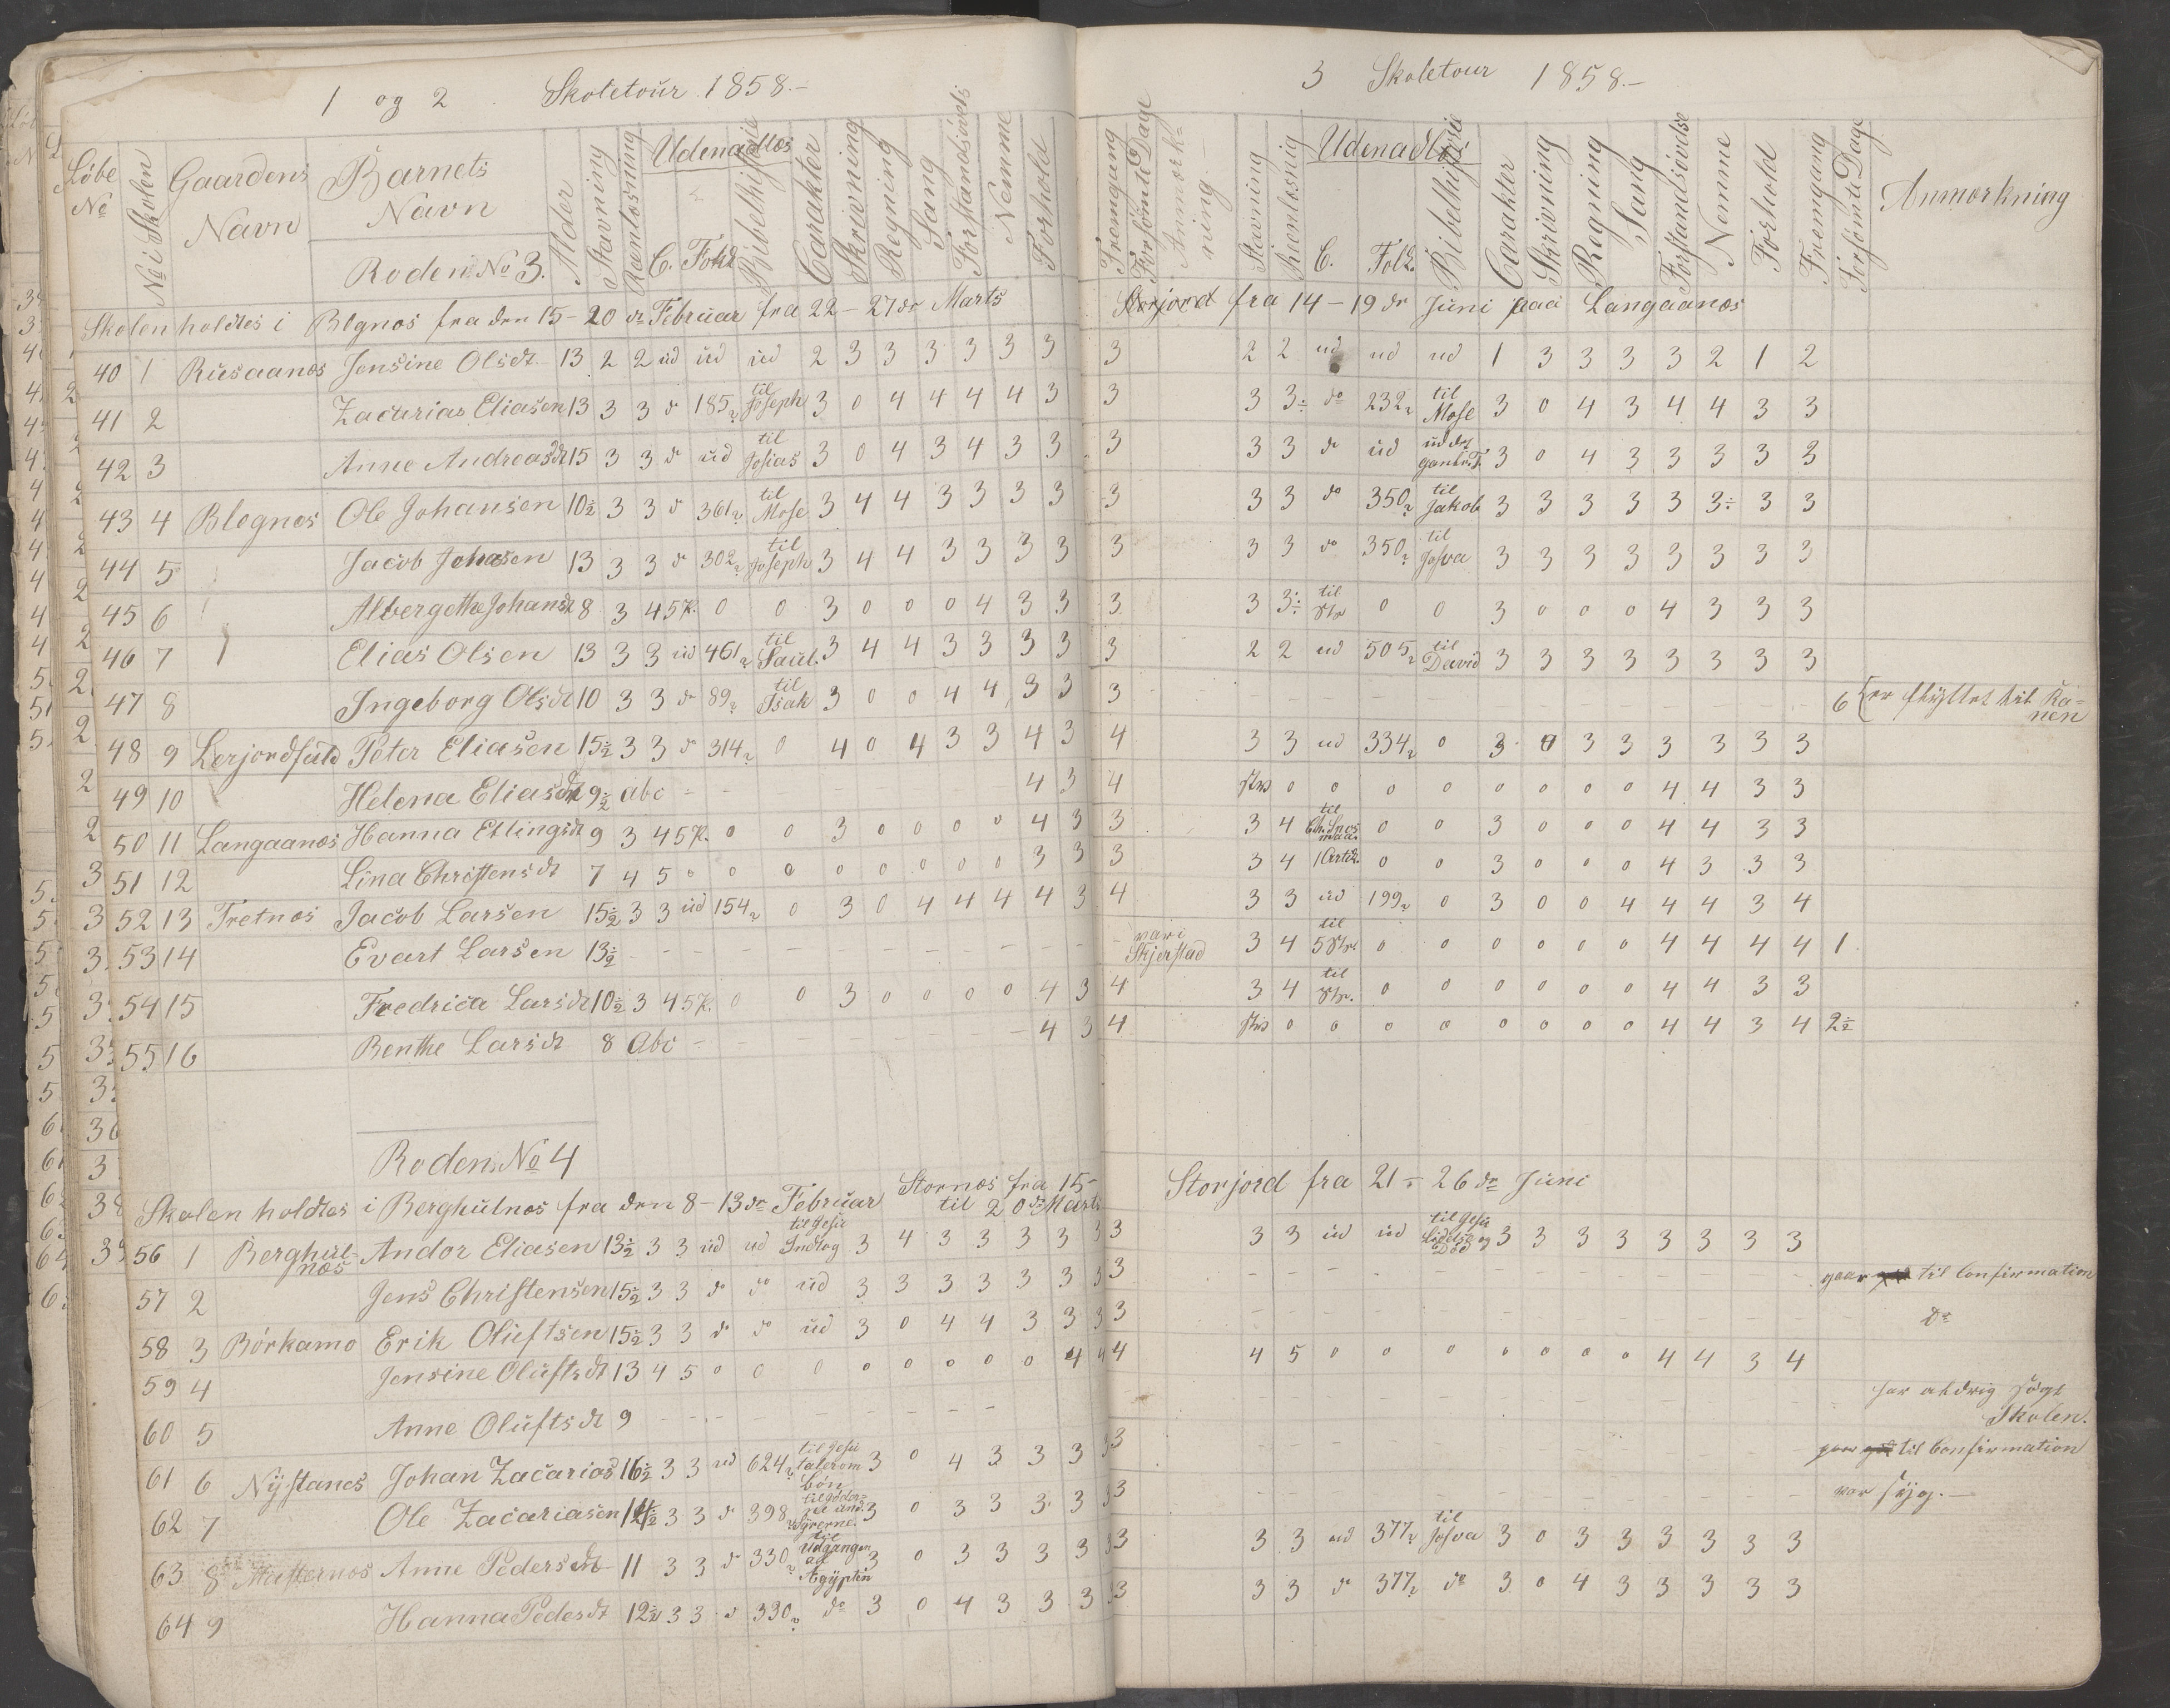 1 og 2 Skoletour 1858.-
Löbe No
No i Skolen
Gaardens Navn
Barnets Navn
Roden No 3.
Alder
Stavning
Udenadlæs
C. Fork
Bibelhistorie
Carakter
Skrievning
Regning
Sang
Forstandsövels
Nemme
Forhold
Skolen holdtes i Blegnæs fra den 15 - 20 de Februar fra 22 - 27 de Marts
40 1 Rusaanæs Jensine Olsdt 13 2 2 ud ud ud 2 3 3 3 3 3 3
41 2 Zacarias Eliasen 13 3 3 do 185 til Joseph 3 0 4 4 4 4 3
42 3 Anne Andreasdt 15 3 3 do ud til Josias 3 0 4 3 4 3 3
43 4 Blegnæs Ole Johansen 10½ 3 3 do 361 til Mose 3 4 4 3 3 3 3
44 5 Jacob Johasen 13 3 3 do 302 til Joseph 3 4 4 3 3 3 3
45 6 Albergethe Johansdt 8 3 4 5 K. 0 0 3 0 0 0 4 3 3
46 7 Elias Olsen 13 3 3 ud 461 til Saul. 3 4 4 3 3 3 3
47 8 Ingeborg Olsdt 10 3 3 do 89 til Isak 3 0 0 4 4 3 3
48 9 Lerjordfald Peter Eliasen 15½ 3 3 do 314 0 4 0 4 3 3 4 3
49 10 Helena Eliasdt 9½ abc - - - - - 4 3
50 11 Langaanæs Hanna Ellingsdt 9 3 4 5 K. 0 0 3 0 0 0 0 4 3
51 12 Lina Christensdt 7 4 5 0 0 0 0 0 0 0 0 3 3
52 13 Tretnæs Jacob Larsen 15½ 3 3 ud 154 0 3 0 4 4 4 4 3
53 14 Evart Larsen 13½ - - - - - - - -
54 15 Fredrica Larsdt 10½ 3 4 5 K. 0 0 3 0 0 0 0 4 3
55 16 Benthe Larsdt 8 Abc - - - 4 3
Roden No 4
Skolen holdtes i Berghulnæs fra den 8 - 13 de Februar Stornæs fra 15 - til 20 de Marts
56 1 Berghulnæs Andor Eliasen 13½ 3 3 ud ud til Jesu Indtog 3 4 3 3 3 3 3
57 2 Jens Christensen 15½ 3 3 do do ud 3 3 3 3 3 3 3
58 3 Börkamo Erik Oluftsen 15½ 3 3 do do ud 3 0 4 4 3 3 3
59 4 Jensine Oluftsdt 13 4 5 0 0 0 0 0 0 0 0 4 4
60 5 Anne Oluftsdt 9 - - - - - - - -
61 6 Nÿstanes Johan Zacarias 16½ 3 3 ud 624 til Jesu taler om bön 3 0 4 3 3 3 3
62 7 Ole Zacariasen 14½ 3 3 do 398 3 0 3 3 3 3 3
63 8 Anne Pedersdt 11 3 3 do 330 til Udgangen af Ægÿpten 3 0 3 3 3 3 3
64 9 Hanna Pedesdt 12½ 3 3 do 330 do 3 0 4 3 3 3 3
3 Skoletour 1858.-
Fremgang
Forsömte Dage
Anmærkning
Stavning
Udenadlæs
C.
Folk.
Bibelhistorie
Carakter
Skrivning
Regning
Sang
Forstandsövelse
Nemme
Forhold
Fremgang
Forsömte Dage
Anmærkning
fra 14 - 19 de Juni paa Langaanæs
3 2 2 ud ud ud 1 3 3 3 3 2 1 2
3 3 3÷ do 232 til Mose 3 0 4 3 4 4 3 3
3 3 3 do ud 3 0 4 3 3 3 3 3
3 3 3 do 350 til Jakob 3 3 3 3 3 3÷ 3 3
3 3 3 do 350 til Josva 3 3 3 3 3 3 3 3
3 3 3÷ til 0 0 3 0 0 0 4 3 3 3
3 2 2 ud 505 til David 3 3 3 3 3 3 3 3
3 - - - - - - - - - - 6 er flÿttet til Ranen
4 3 3 ud 334 0 3 0 3 3 3 3 3 3
4 0 0 0 0 0 0 0 0 4 4 3 3
3 3 4 til 0 0 3 0 0 0 4 4 3 3
3 3 4 1 Artik. 0 0 3 0 0 0 4 3 3 3
4 3 3 ud 199 0 3 0 0 4 4 4 3 4
- var i Skjerstad 3 4 til 5 0 0 0 0 0 0 4 4 4 4 1
4 3 4 til 0 0 0 0 0 0 4 4 3 3
4 0 0 0 0 0 0 0 0 4 4 3 4 2½
Storjord fra 21 - 26 de Juni
3 3 3 ud ud til Jesu Lidelse og Död 3 3 3 3 3 3 3 3
3 - - - - - - - - gaar til Confirmation
3 - - - - - - - - Do
4 4 5 0 0 0 0 0 0 0 4 4 3 4
- - - - - - - - har aldrig sögt Skolen.
3 - - - - - - - - gaar til Confirmation
3 - - - - - - - - var sÿg. -
3 3 3 ud 377 til Josva 3 0 3 3 3 3 3 3
3 3 3 do 377 do 3 0 4 3 3 3 3 3